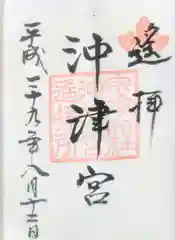 遙拝
沖津宮
平成二十九年八月十二日